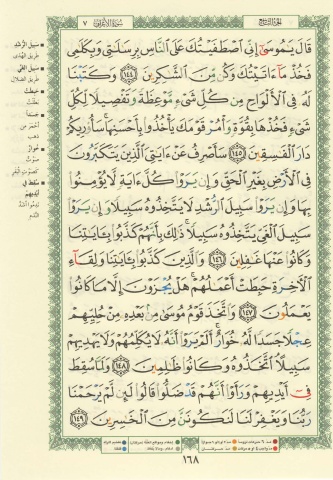 الجزء التاسع
سورة الأعراف
٧
قَالَ يَٰمُوسَىٰٓ إِنِّي ٱصۡطَفَيۡتُكَ عَلَى ٱلنَّاسِ بِرِسَٰلَٰتِي وَبِكَلَٰمِي
فَخُذۡ مَآ ءَاتَيۡتُكَ وَكُن مِّنَ ٱلشَّٰكِرِينَ ١٤٤ وَكَتَبۡنَا
لَهُۥ فِي ٱلۡأَلۡوَاحِ مِن كُلِّ شَيۡءٖ مَّوۡعِظَةٗ وَتَفۡصِيلٗا لِّكُلِّ
شَيۡءٖ فَخُذۡهَا بِقُوَّةٖ وَأۡمُرۡ قَوۡمَكَ يَأۡخُذُواْ بِأَحۡسَنِهَاۚ سَأُوْرِيكُمۡ
دَارَ ٱلۡفَٰسِقِينَ ١٤٥ سَأَصۡرِفُ عَنۡ ءَايَٰتِيَ ٱلَّذِينَ يَتَكَبَّرُونَ
فِي ٱلۡأَرۡضِ بِغَيۡرِ ٱلۡحَقِّ وَإِن يَرَوۡاْ كُلَّ ءَايَةٖ لَّا يُؤۡمِنُواْ
بِهَا وَإِن يَرَوۡاْ سَبِيلَ ٱلرُّشۡدِ لَا يَتَّخِذُوهُ سَبِيلٗا وَإِن يَرَوۡاْ
سَبِيلَ ٱلۡغَيِّ يَتَّخِذُوهُ سَبِيلٗاۚ ذَٰلِكَ بِأَنَّهُمۡ كَذَّبُواْ بِـَٔايَٰتِنَا
وَكَانُواْ عَنۡهَا غَٰفِلِينَ ١٤٦ وَٱلَّذِينَ كَذَّبُواْ بِـَٔايَٰتِنَا وَلِقَآءِ
ٱلۡأٓخِرَةِ حَبِطَتۡ أَعۡمَٰلُهُمۡۚ هَلۡ يُجۡزَوۡنَ إِلَّا مَا كَانُواْ
يَعۡمَلُونَ ١٤٧ وَٱتَّخَذَ قَوۡمُ مُوسَىٰ مِنۢ بَعۡدِهِۦ مِنۡ حُلِيِّهِمۡ
عِجۡلٗا جَسَدٗا لَّهُۥ خُوَارٌۚ أَلَمۡ يَرَوۡاْ أَنَّهُۥ لَا يُكَلِّمُهُمۡ وَلَا يَهۡدِيهِمۡ
سَبِيلًاۘ ٱتَّخَذُوهُ وَكَانُواْ ظَٰلِمِينَ ١٤٨ وَلَمَّا سُقِطَ
فِيٓ أَيۡدِيهِمۡ وَرَأَوۡاْ أَنَّهُمۡ قَدۡ ضَلُّواْ قَالُواْ لَئِن لَّمۡ يَرۡحَمۡنَا
رَبُّنَا وَيَغۡفِرۡ لَنَا لَنَكُونَنَّ مِنَ ٱلۡخَٰسِرِينَ ١٤٩
سبيل الرشد
طريق الهدى
سبيل الغي
طريق الضلال
حبطت
بطلت
جسدا
خوار
صوت
كصوت البقر
سقط في
أيديهم
ندموا أشد
الندم
١٦٨